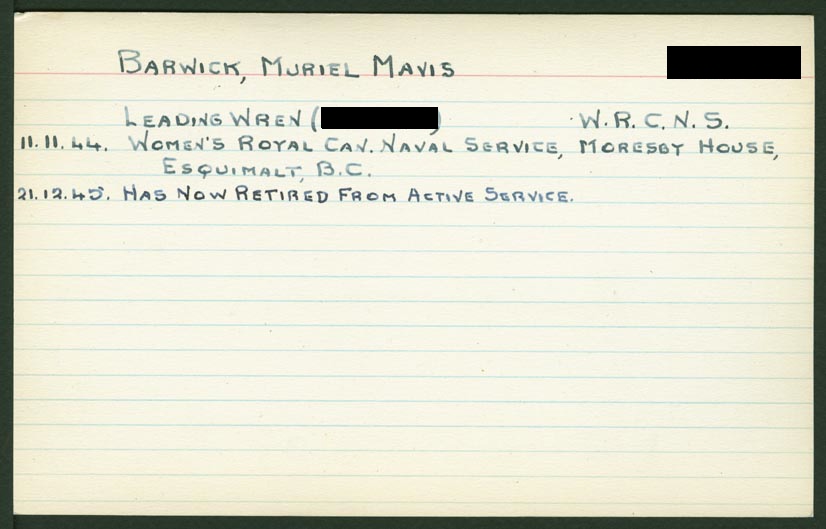 BARWICK, MURIEL MAVIS
LEADING WREN ( ) W.R.C.N.S.
11.11.44. WOMEN'S ROYAL CAN. NAVAL SERVICE, MORESBY HOUSE,
ESQUIMALT, B.C.
21.12.45. HAS NOW RETIRED FROM ACTIVE SERVICE.